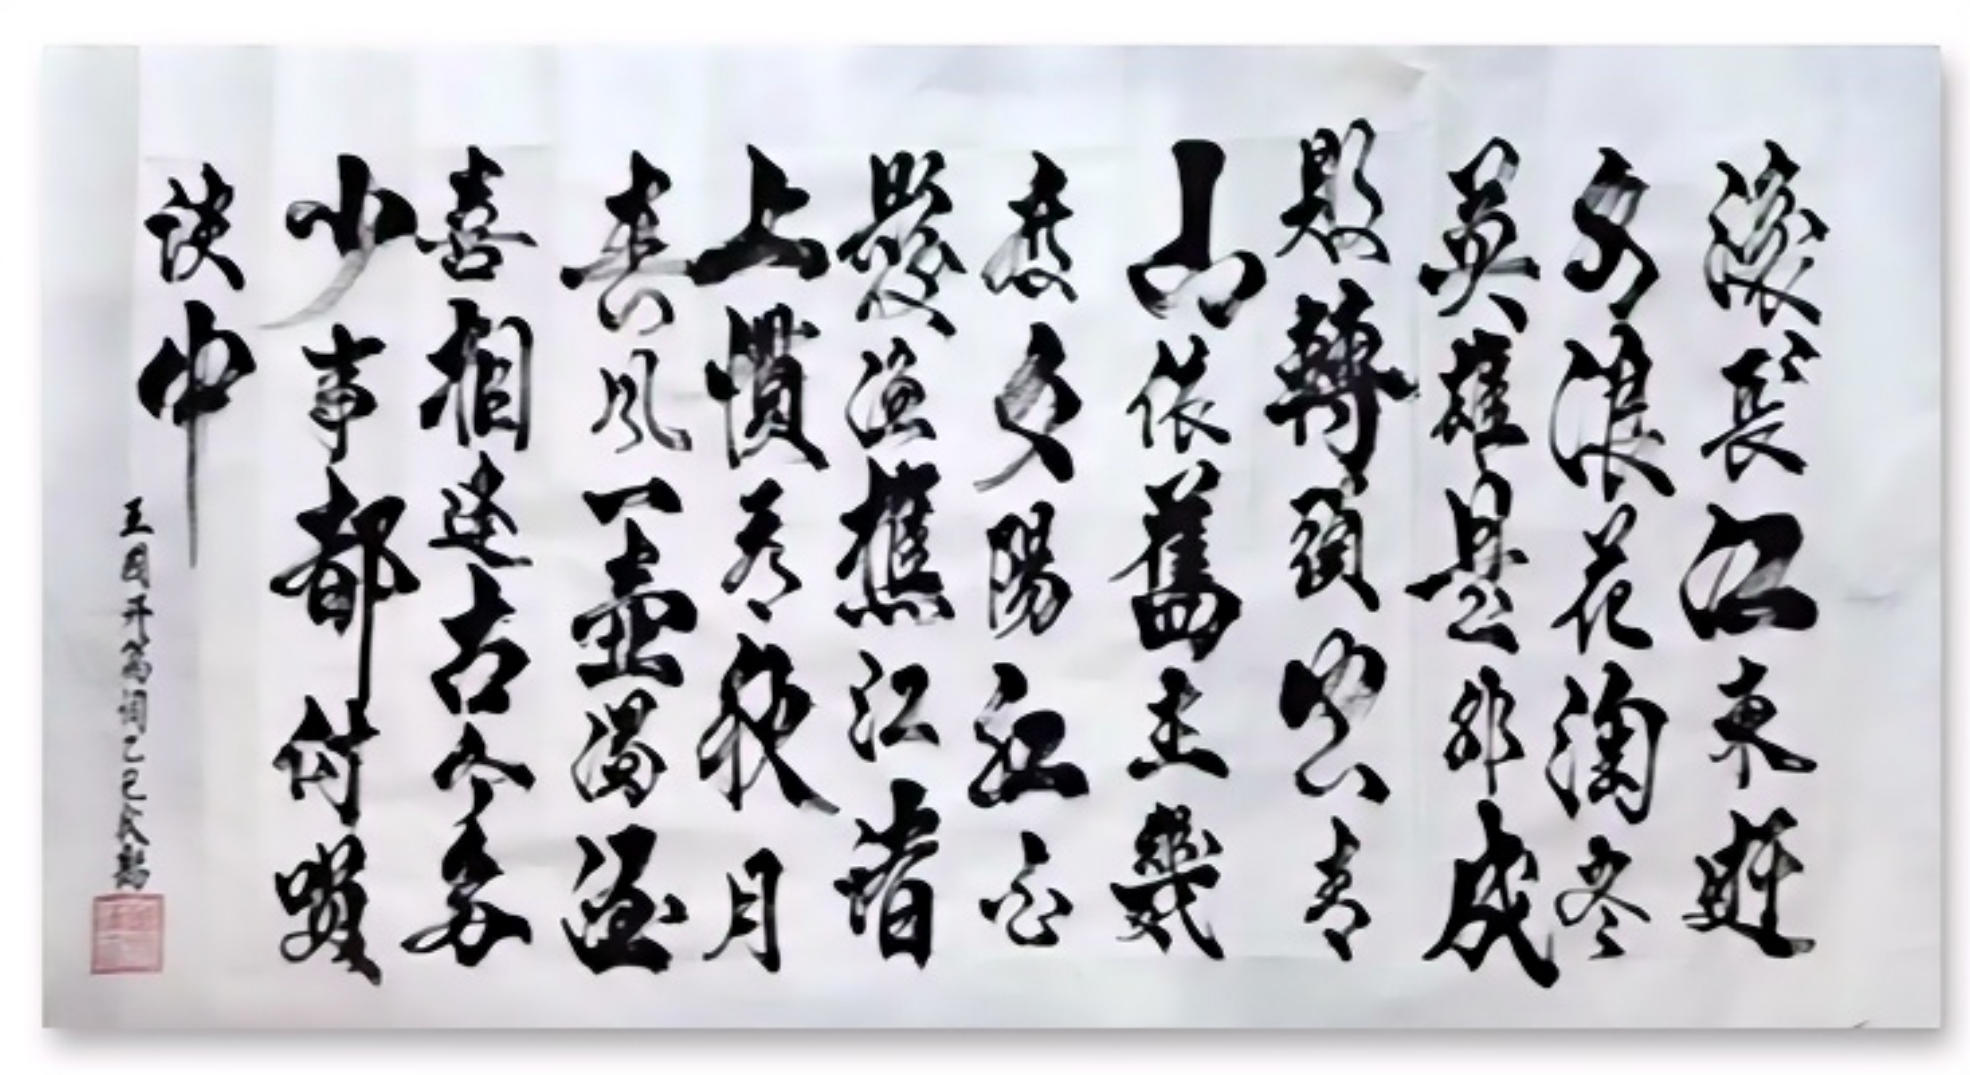 滾〻長江東逝
水浪花淘尽
英雄是非成
敗轉頭空青
山依舊在幾
度夕陽紅白
髮漁樵江渚
上慣看秋月
春風一壺濁酒
喜相逢古今多
少事都付笑
談中
三国开篇词乙巳秋